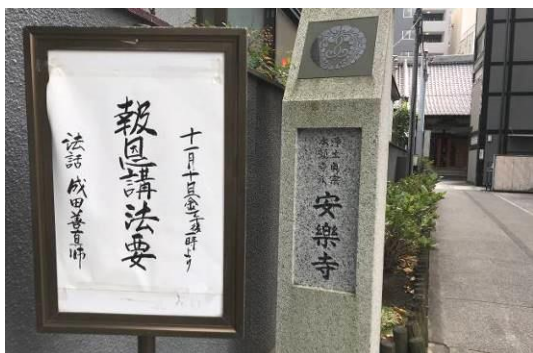 十一月十日金午後一時より
報恩講法要
法話 成田善師
浄土真宗
本願寺派
安樂寺